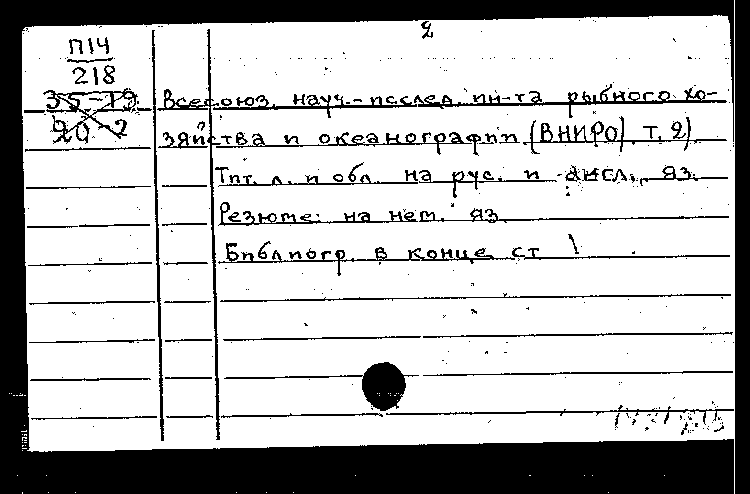 2
П14
218
35-19
20-2
Всесоюз. науч.-исслед. ин-та рыбного хо-
зяйства и океанографии (ВНИРО). Т. 2)
Тит. л. и обл. на рус. и англ. яз.
Резюме: на нем. яз.
Библиогр. в конце ст.